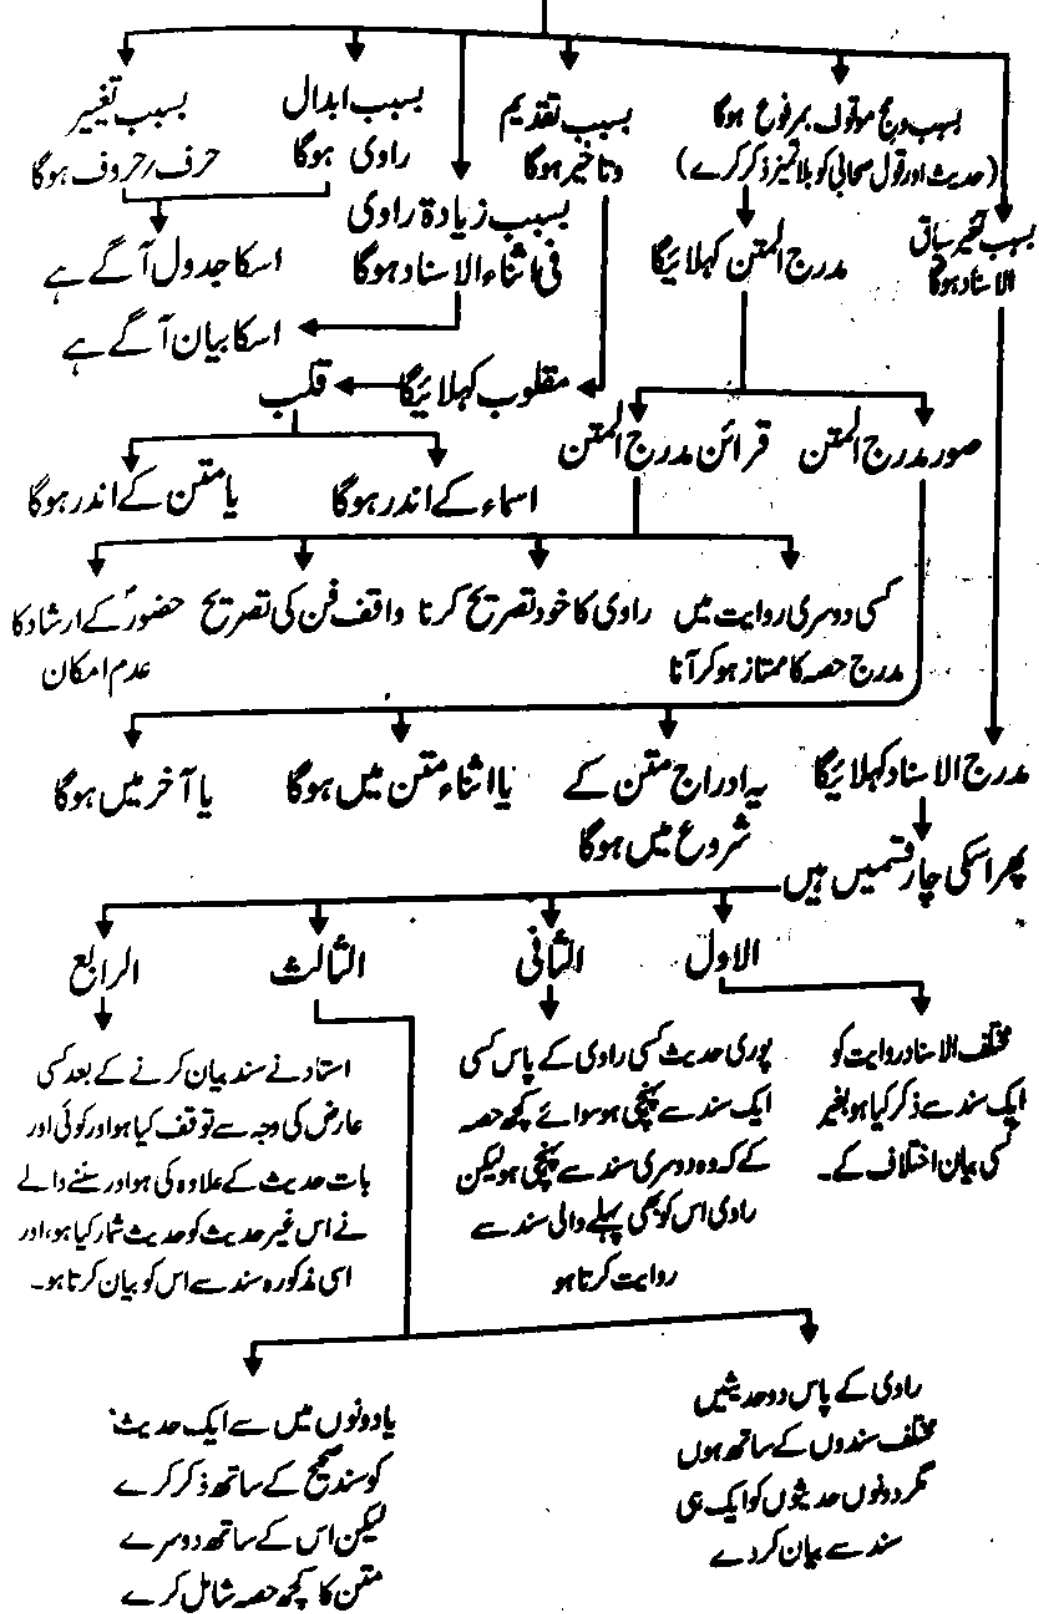 بسبب دمج موقوف بمرفوع ہوگا
(حدیث اور قول صحابی کو بلاتمیز ذکر کرے)
بسبب تقدیم
وتاخیر ہوگا
بسبب ابدال
راوی ہوگا
بسبب تغییر
حرف/حروف ہوگا
بسبب تغیر سیاق
الاسناد ہوگا
مدرج المتن کہلائیگا
بسبب زیادۃ راوی
فی اثناء الاسناد ہوگا
اسکا جدول آگے ہے
اسکا بیان آگے ہے
مقلوب کہلائیگا
قلب
صور مدرج المتن
قرائن مدرج المتن
اسماء کے اندر ہوگا
یا متن کے اندر ہوگا
کسی دوسری روایت میں
مدرج حصہ کا ممتاز ہو کر آنا
راوی کا خود تصریح کرنا
واقف فن کی تصریح
حضورؐ کے ارشاد کا
عدم امکان
مدرج الاسناد کہلائیگا
یہ ادراج متن کے
شروع میں ہوگا
یا اثناء متن میں ہوگا
یا آخر میں ہوگا
پھر اسکی چار قسمیں ہیں
الاول
الثانی
الثالث
الرابع
مختلف الاسناد روایت کو
ایک سند سے ذکر کیا ہو بغیر
کسی بیان اختلاف کے۔
پوری حدیث کسی راوی کے پاس کسی
ایک سند سے پہنچی ہو سوائے کچھ حصہ
کے کہ وہ دوسری سند سے پہنچی ہو لیکن
راوی اس کو بھی پہلے والی سند سے
روایت کرتا ہو
استاد نے سند بیان کرنے کے بعد کسی
عارض کی وجہ سے توقف کیا ہو اور کوئی اور
بات حدیث کے علاوہ کی ہو اور سننے والے
نے اس غیر حدیث کو حدیث شمار کیا ہو، اور
اسی مذکورہ سند سے اس کو بیان کرتا ہو۔
راوی کے پاس دو حدیثیں
مختلف سندوں کے ساتھ ہوں
مگر دونوں حدیثوں کو ایک ہی
سند سے بیان کردے
یا دونوں میں سے ایک حدیث
کو سند صحیح کے ساتھ ذکر کرے
لیکن اس کے ساتھ دوسرے
متن کا کچھ حصہ شامل کرے